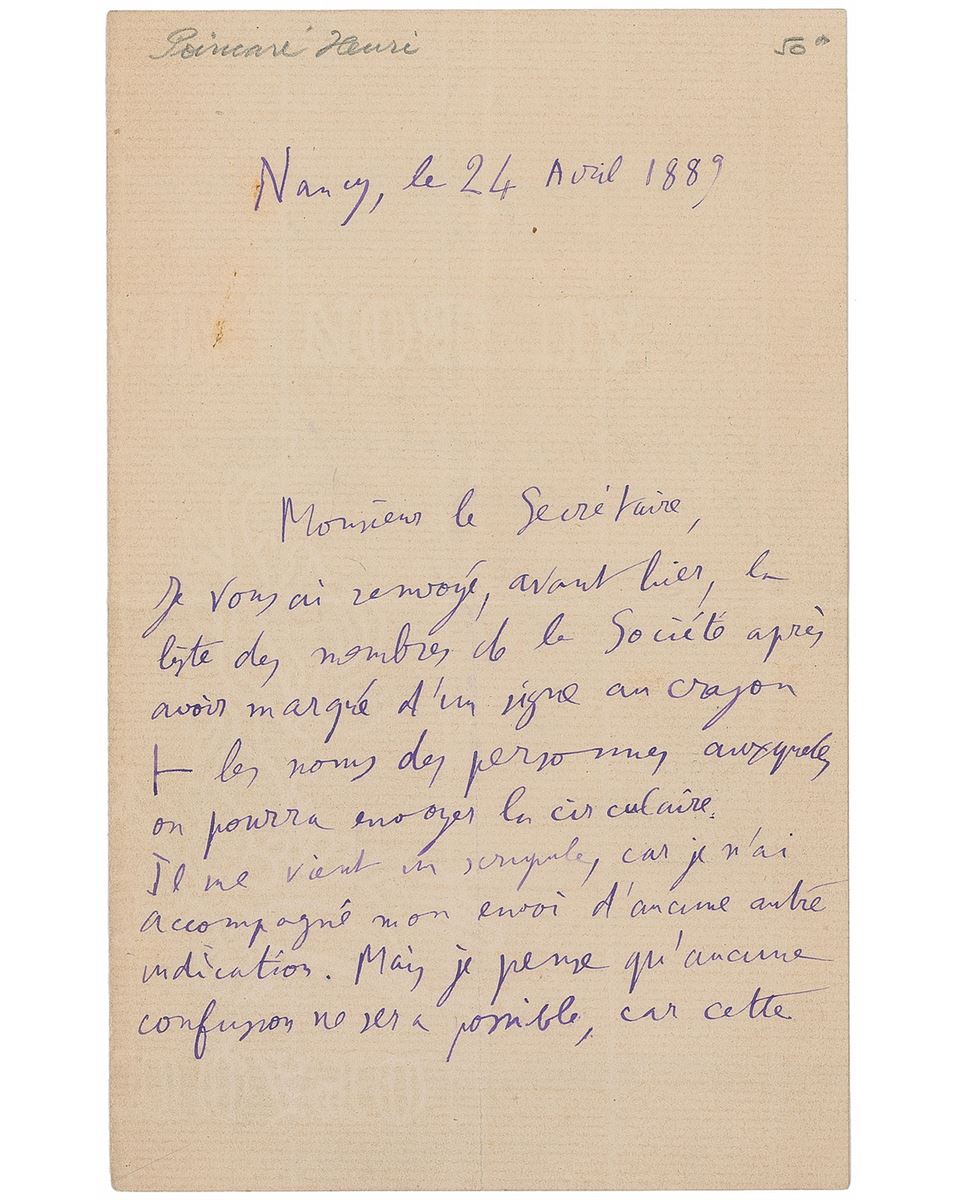 Poincaré Henri
50
Nancy, le 24 Avril 1889
Monsieur le Secrétaire,
Je vous ai renvoyé, avant hier, la
liste des membres de la Société après
avoir marqué d'un signe au crayon
⊢ les noms des personnes auxquelles
on pourra envoyer la circulaire.
Il me vient un scrupule, car je n'ai
accompagné mon envoi d'aucune autre
indication. Mais je pense qu'aucune
confusion ne sera possible, car cette